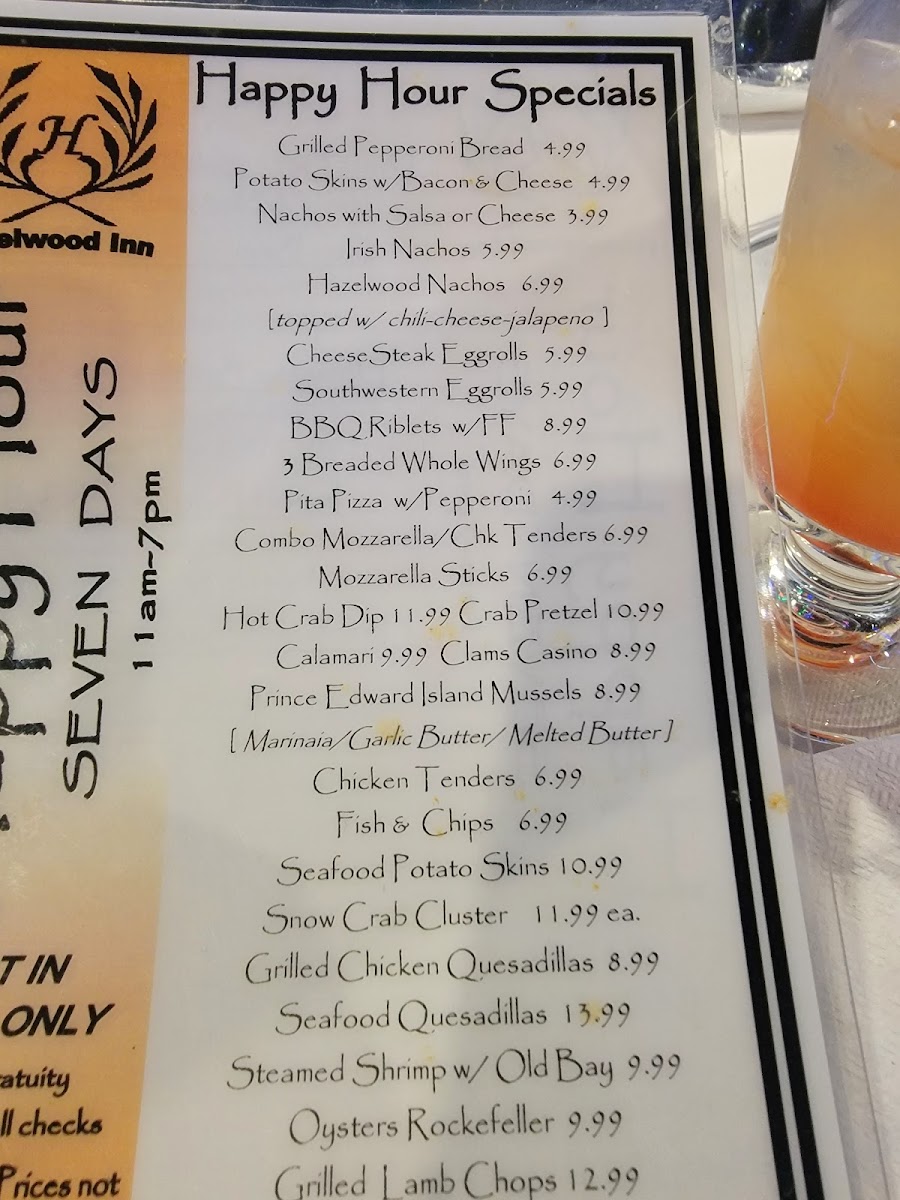 H
elwood Inn
SEVEN DAYS
11am~7pm
T IN
ONLY
atuity
ll checks
Prices not
Happy Hour Specials
Grilled Pepperoni Bread 4.99
Potato Skins w/Bacon & Cheese 4.99
Nachos with Salsa or Cheese 3.99
Irish Nachos 5.99
Hazelwood Nachos 6.99
[topped w/ chili-cheese-jalapeno ]
CheeseSteak Eggrolls 5.99
Southwestern Eggrolls 5.99
BBQ Riblets w/FF 8.99
3 Breaded Whole Wings 6.99
Pita Pizza w/Pepperoni 4.99
Combo Mozzarella/Chk Tenders 6.99
Mozzarella Sticks 6.99
Hot Crab Dip 11.99 Crab Pretzel 10.99
Calamari 9.99 Clams Casino 8.99
Prince Edward Island Mussels 8.99
[ Marinaia/Garlic Butter/ Melted Butter ]
Chicken Tenders 6.99
Fish & Chips 6.99
Seafood Potato Skins 10.99
Snow Crab Cluster 11.99 ea.
Grilled Chicken Quesadillas 8.99
Seafood Quesadillas 13.99
Steamed Shrimp w/ Old Bay 9.99
Oysters Rockefeller 9.99
Grilled Lamb Chops 12.99